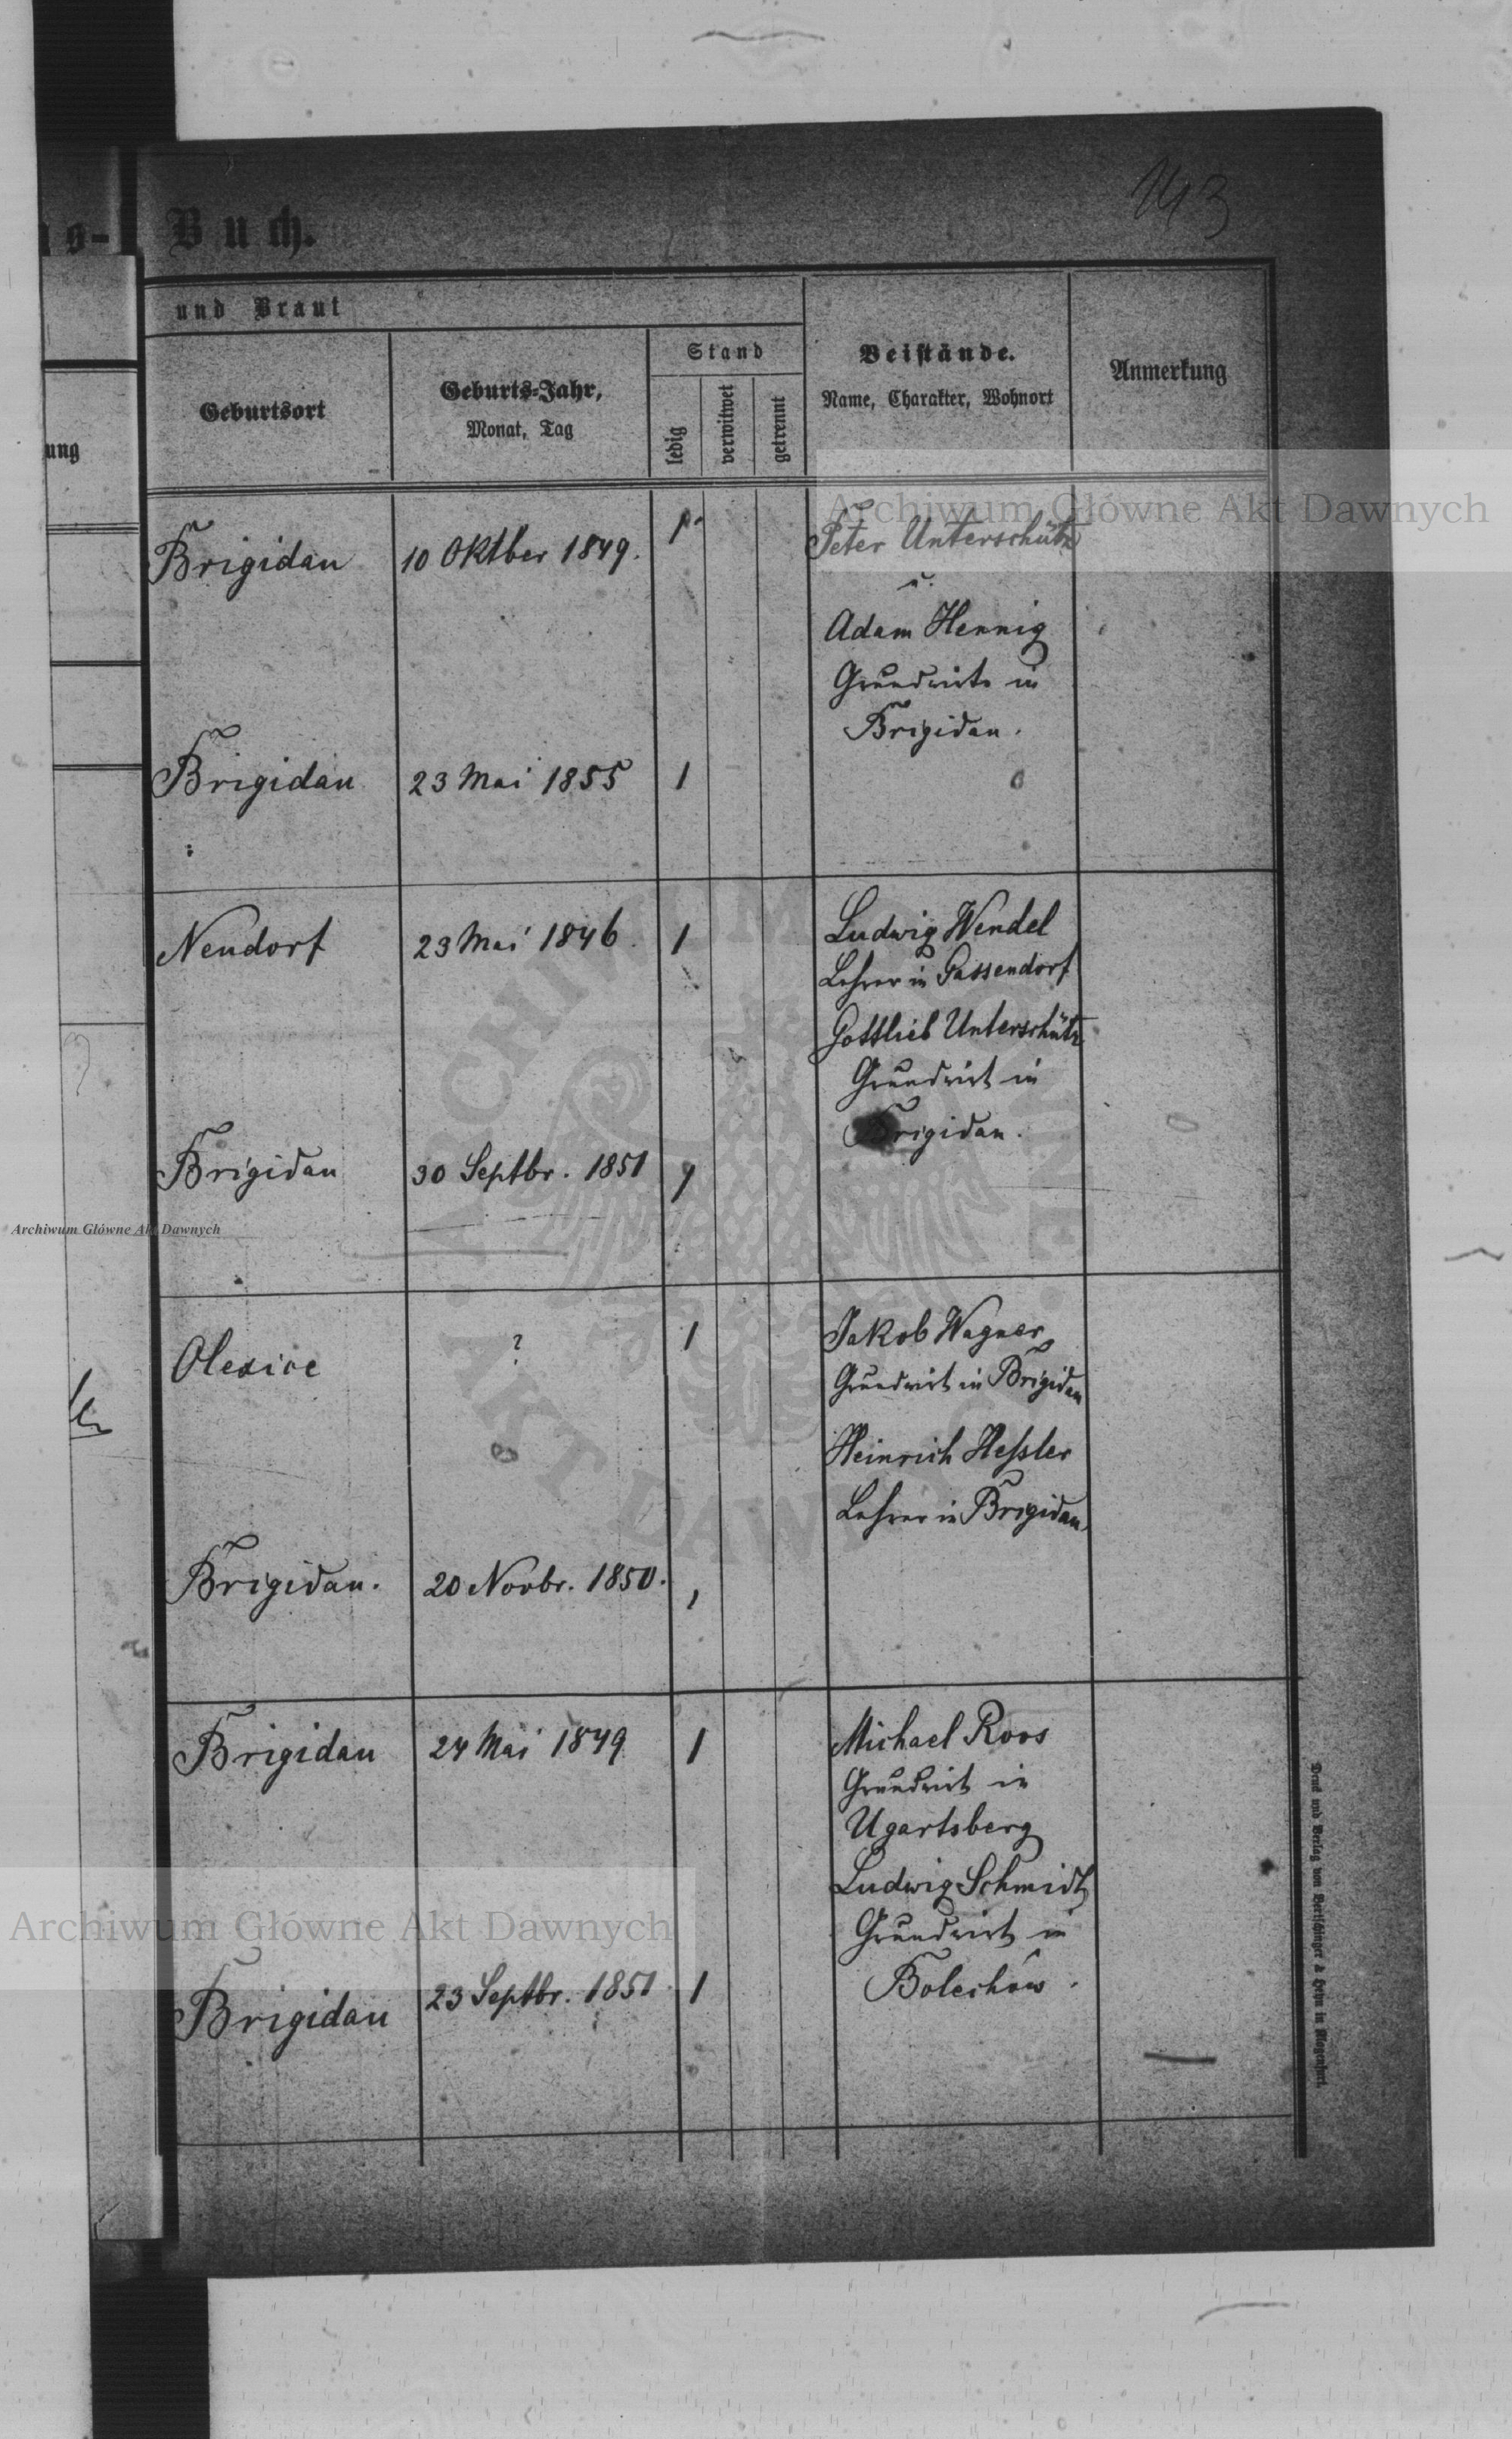 143
g-
Buch.
und Braut
Geburtsort
Geburts-Jahr,
Monat, Tag
Stand
ledig
verwitwet
getrennt
Beistände.
Name, Charakter, Wohnort
Anmerkung
ung
Archiwum Główne Akt Dawnych
Brigidau
10 Oktber 1849.
1
Peter Unterschütz
u.
Adam Hennig
Grundwirte in
Brigidau.
Brigidau
23 Mai 1855
1
Neudorf
23 Mai 1846.
1
Ludwig Wendel
Lehrer in Gassendorf
Gottlieb Unterschütz
Grundwirt in
Brigidau.
Brigidau
30 Septbr. 1851
1
Archiwum Główne Akt Dawnych
Olexice
?
1
Jakob Wagner
Grundwirt in Brigidau
Heinrich Heſsler
Lehrer in Brigidau
Brigidau.
20 Novbr. 1850.
1
ARCHIWUM
AKT DAW
Brigidau
24 Mai 1849
1
Michael Roos
Grundwirt in
Ugartsberg
Ludwig Schmidt
Grundwirt in
Bolechów.
Archiwum Główne Akt Dawnych
Brigidau
23 Septbr. 1851.
1
Druck und Verlag von Bertschinger & Heyn in Klagenfurt.